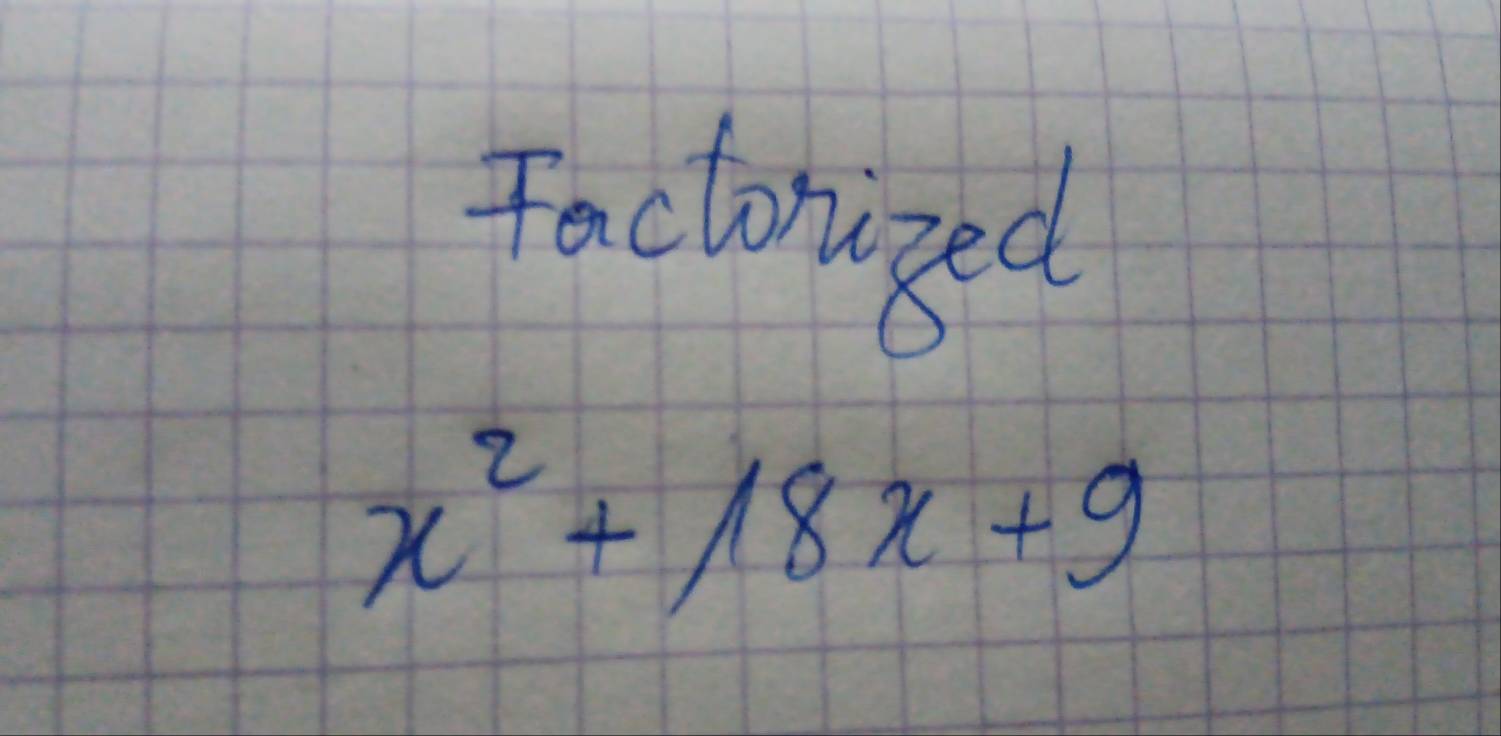 Factorized
x² + 18x + 9